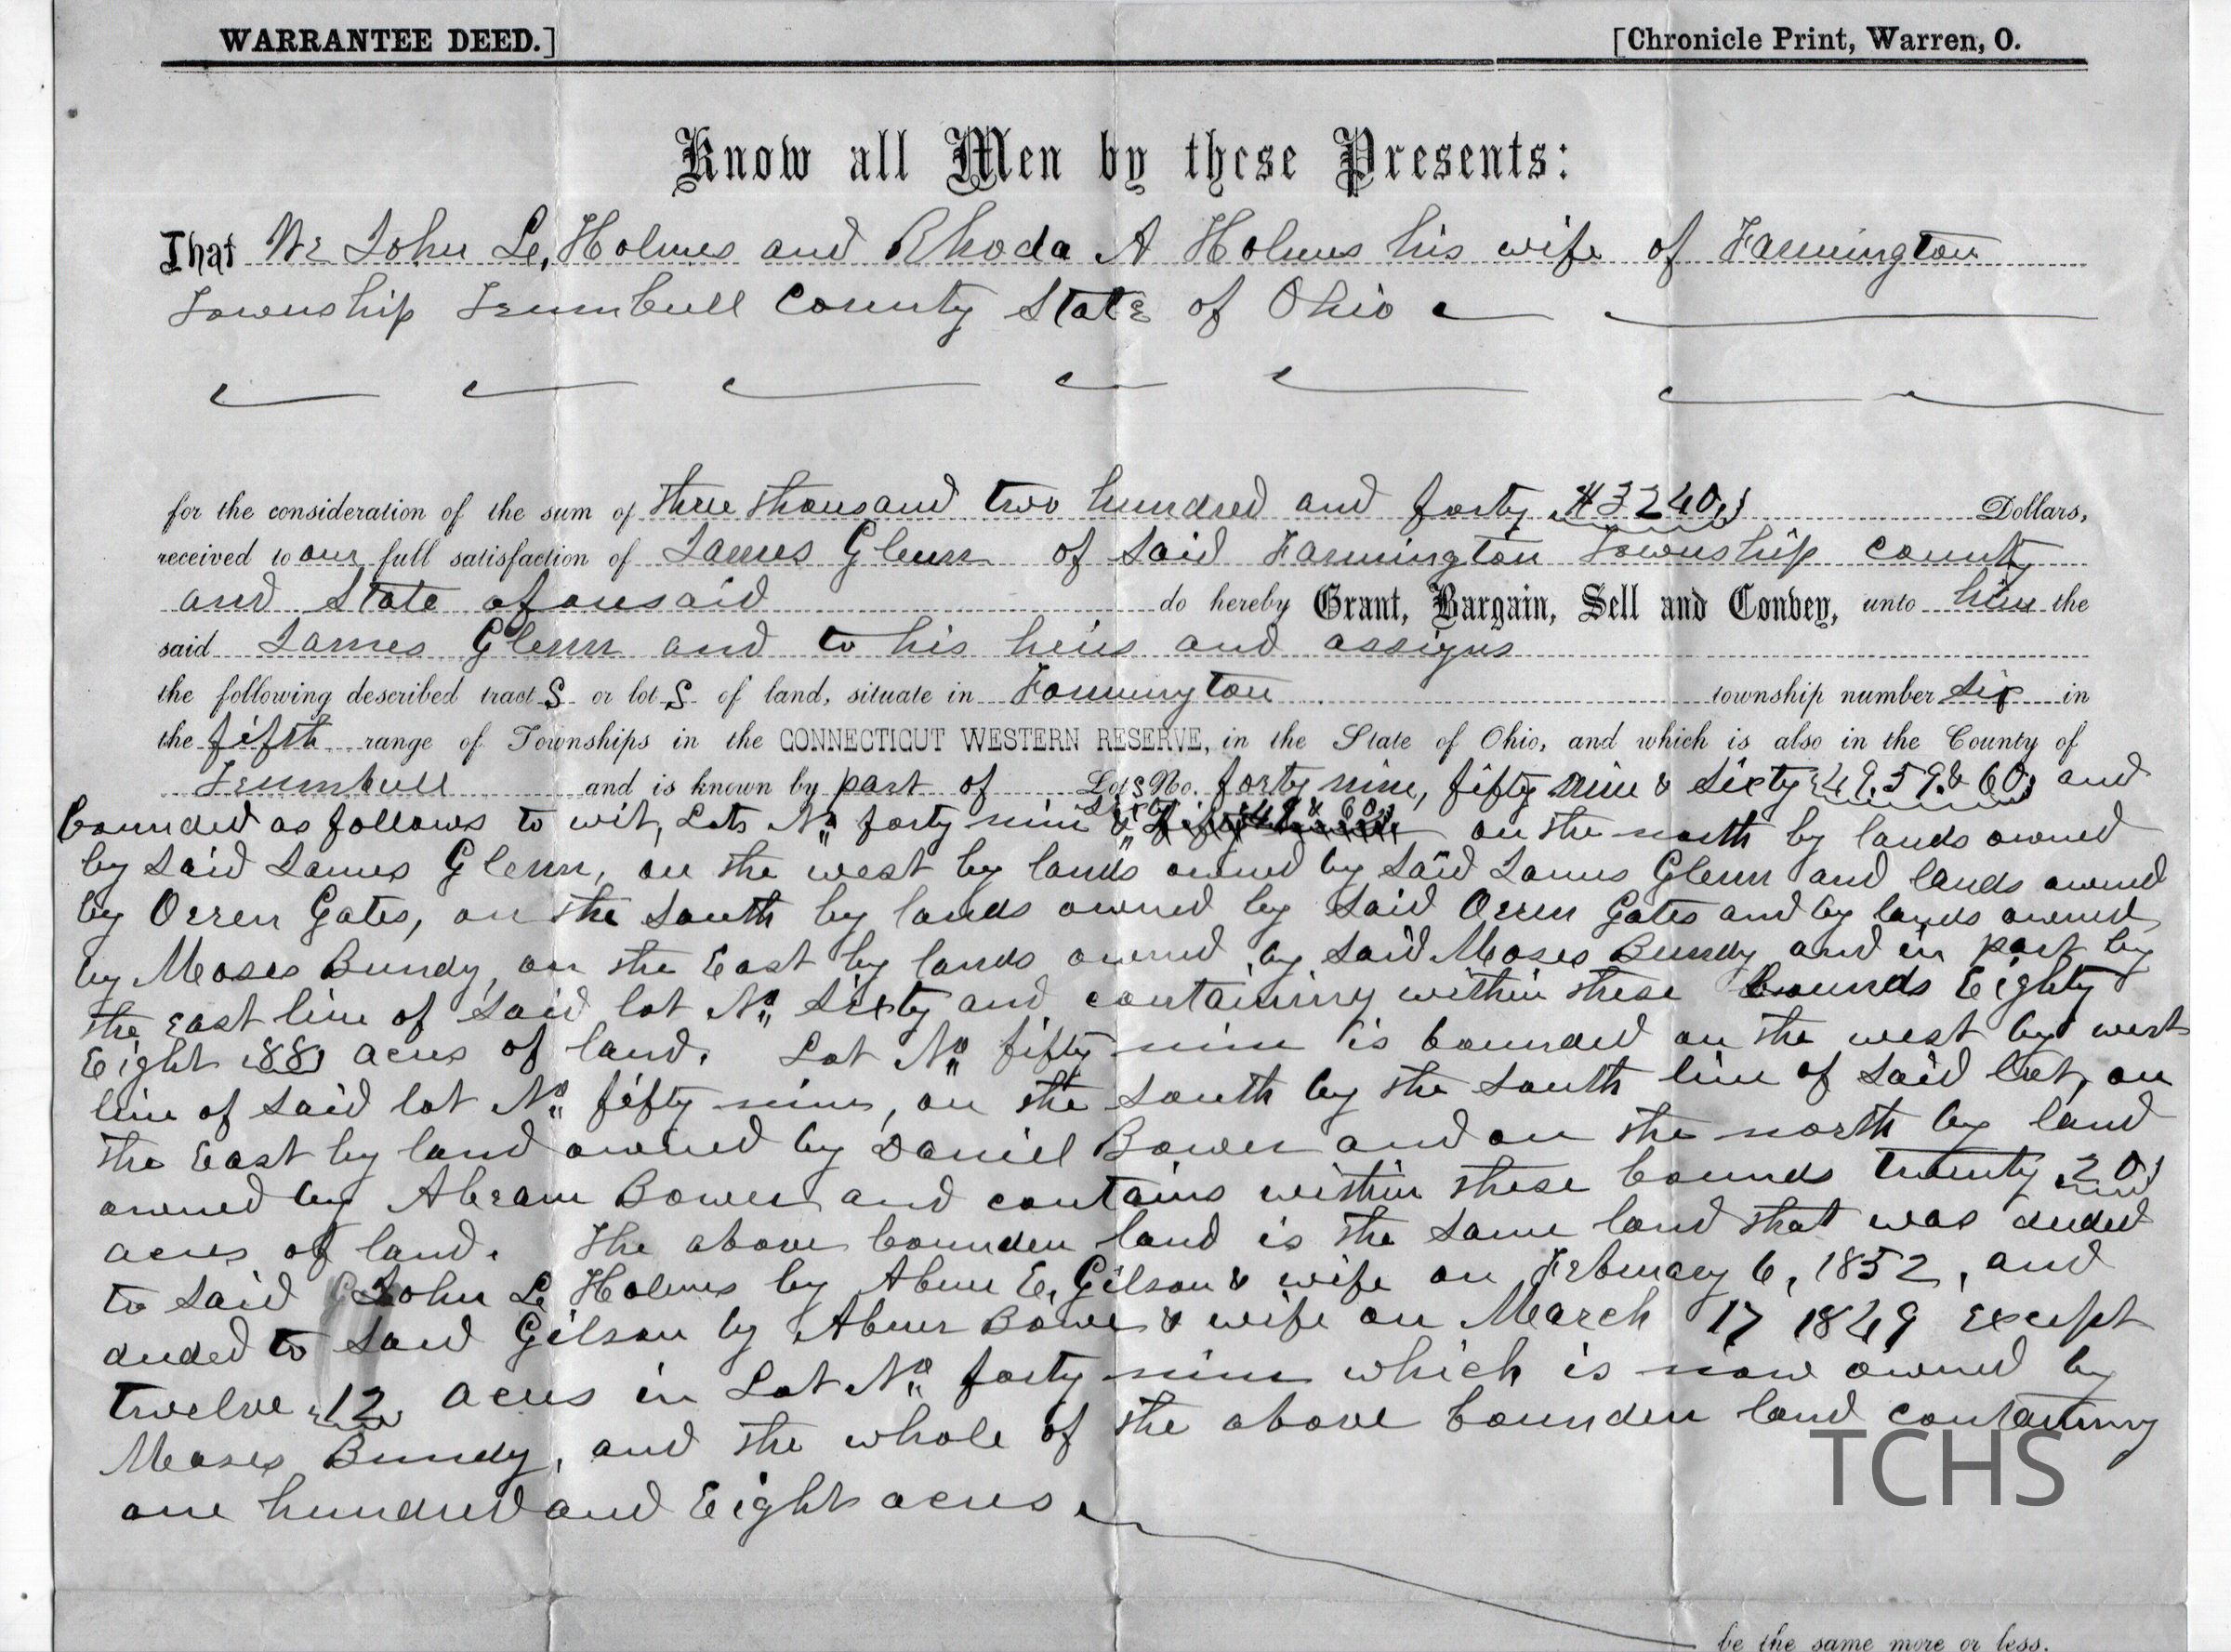 WARRANTEE DEED.] [Chronicle Print, Warren, O.
Know all Men by these Presents:
That We John L. Holmes and Rhoda A Holmes his wife of Farmington
Township Trumbull County State of Ohio
for the consideration of the sum of three thousand two hundred and forty $3240 Dollars,
received to our full satisfaction of James Glenn of said Farmington Township County
and State aforesaid do hereby Grant, Bargain, Sell and Convey, unto him the
said James Glenn and to his heirs and assigns
the following described tract s or lot s of land, situate in Farmington township number six in
the fifth range of Townships in the CONNECTICUT WESTERN RESERVE, in the State of Ohio, and which is also in the County of
Trumbull and is known by part of Lots No. forty nine, fifty nine & Sixty 49, 59, & 60, and
bounded as follows to wit, Lots No forty nine & Sixty 49 & 60 on the north by lands owned
by said James Glenn, on the west by lands owned by said James Glenn and lands owned
by Orren Gates, on the South by lands owned by said Orren Gates and by lands owned
by Moses Bundy, on the East by lands owned by said Moses Bundy and in part by
the East line of said lot No Sixty and containing within these bounds Eighty
Eight 88 acres of land. Lot No fifty nine is bounded on the west by west
line of said lot No fifty nine, on the South by the South line of said lot, on
the East by land owned by Daniel Bower and on the north by land
owned by Abram Bower and contains within these bounds twenty 20
acres of land. The above bounden land is the same land that was deeded
to said John L Holmes by Abner E. Gilson & wife on February 6, 1852, and
deeded to said Gilson by Abner Bower & wife on March 17 1849 except
twelve 12 acres in Lot No forty nine which is now owned by
Moses Bundy, and the whole of the above bounden land containing
one hundred and Eight acres
TCHS
be the same more or less.